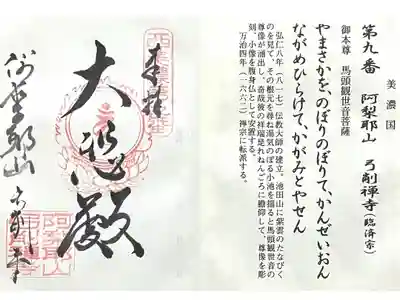 美濃国
第九番 阿梨耶山 弓削禅寺(臨済宗)
御本尊 馬頭観世音菩薩
やまさかを、のぼりのぼりて、かんぜいおん
ながめひらけて、かがみとやせん
弘仁八年(八一七)伝教大師の建立。池田山に紫雲のたなびく
のを見て、その根元を尋ね湯気のぼる小池を掘ると馬頭観世音の
尊像が涌出し、奇哉彼の祥瑞是れねんごろに瞻仰して、尊像を彫
刻、小像を腹身仏として安置する。
万治四年(一六六二)禅宗に転派する。
奉拝
大悲殿
阿梨耶山
弓削寺